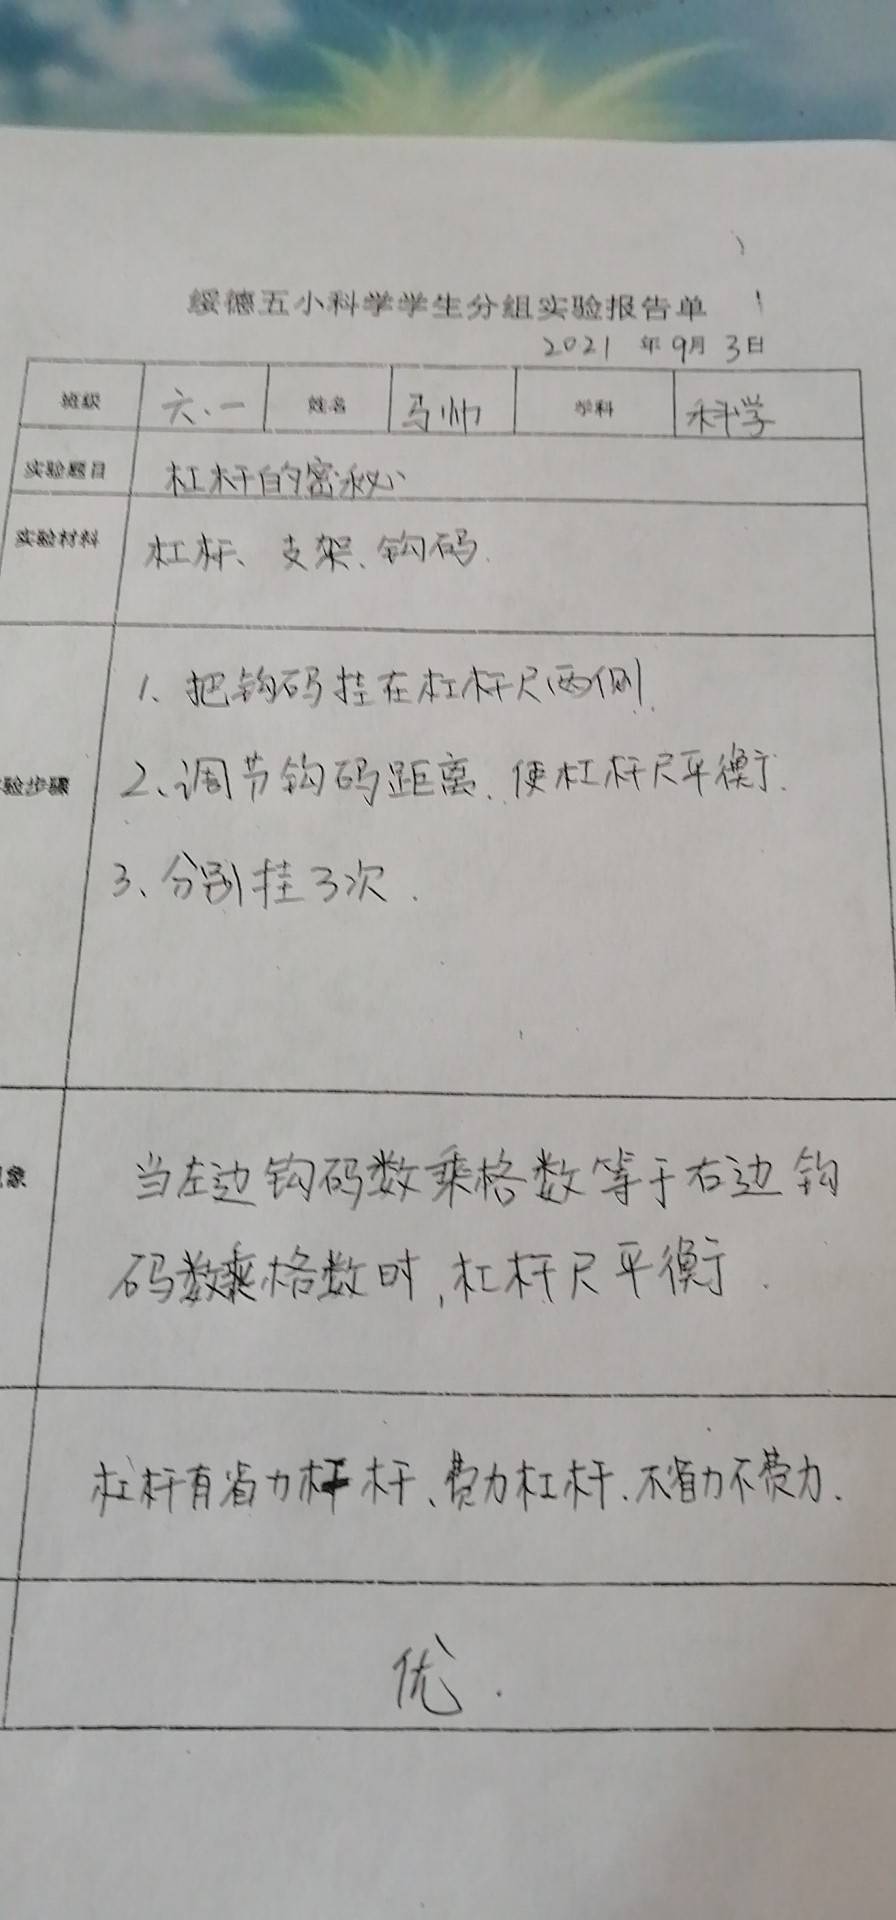 绥德五小科学学生分组实验报告单
2021 年 9月 3日
班级 六.一 姓名 马帅 学科 科学
实验题目 杠杆的密秘
实验材料 杠杆、支架、钩码.
1、把钩码挂在杠杆尺两侧.
验步骤 2、调节钩码距离、使杠杆尺平衡.
3、分别挂3次.
象 当左边钩码数乘格数等于右边钩
码数乘格数时,杠杆尺平衡.
杠杆有省力杠杆、费力杠杆、不省力不费力.
优.